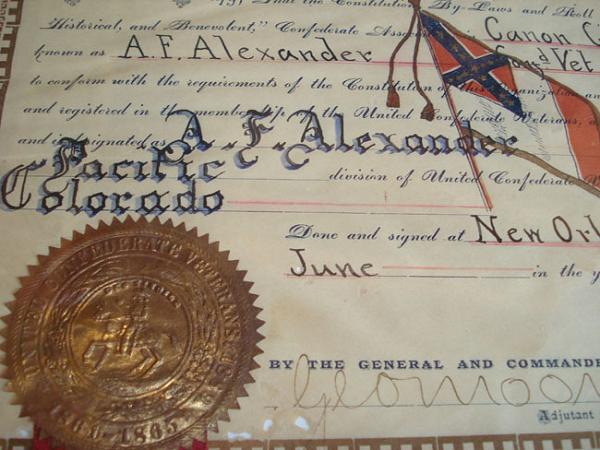 That the Constitution By-Laws and Roll
Historical, and Benevolent," Confederate Canon
known as A. F. Alexander Conf'd Vet
to conform with the requirements of the Constitution of this Organization and
and registered in the membership of the United Confederate Veterans,
and is designated as A. F. Alexander
Pacific division of United Confederate
Colorado
Done and signed at New Orl
June in the y
BY THE GENERAL AND COMMANDE
Geo Moor
Adjutant
UNITED CONFEDERATE VETERANS
1865